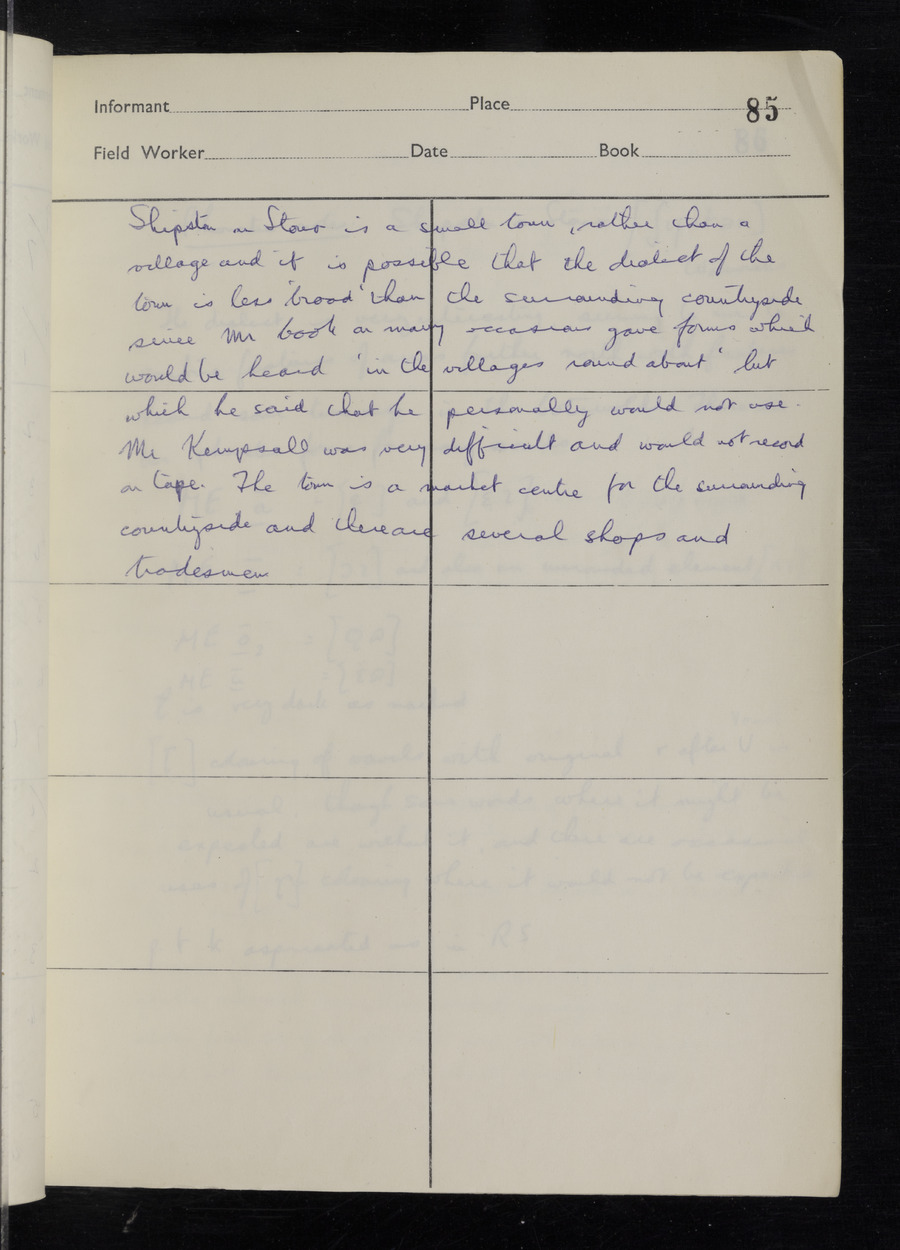 Informant Place 85
Field Worker Date Book
Shipston on Stour is a small town, rather than a
village and it is possible that the dialect of the
town is less 'broad' than the surrounding countryside
since Mr Cook on many occasions gave forms which
would be heard 'in the villages round about' but
which he said that he personally would not use.
Mr Kempsall was very difficult and would not record
on tape. The town is a market centre for the surrounding
countryside and there are several shops and
tradesmen